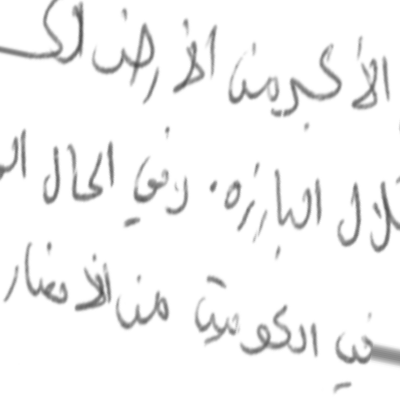 الأكبر من الأرض الك
تلال البارزه. وفي الحال الو
في الكويت من الأمصار